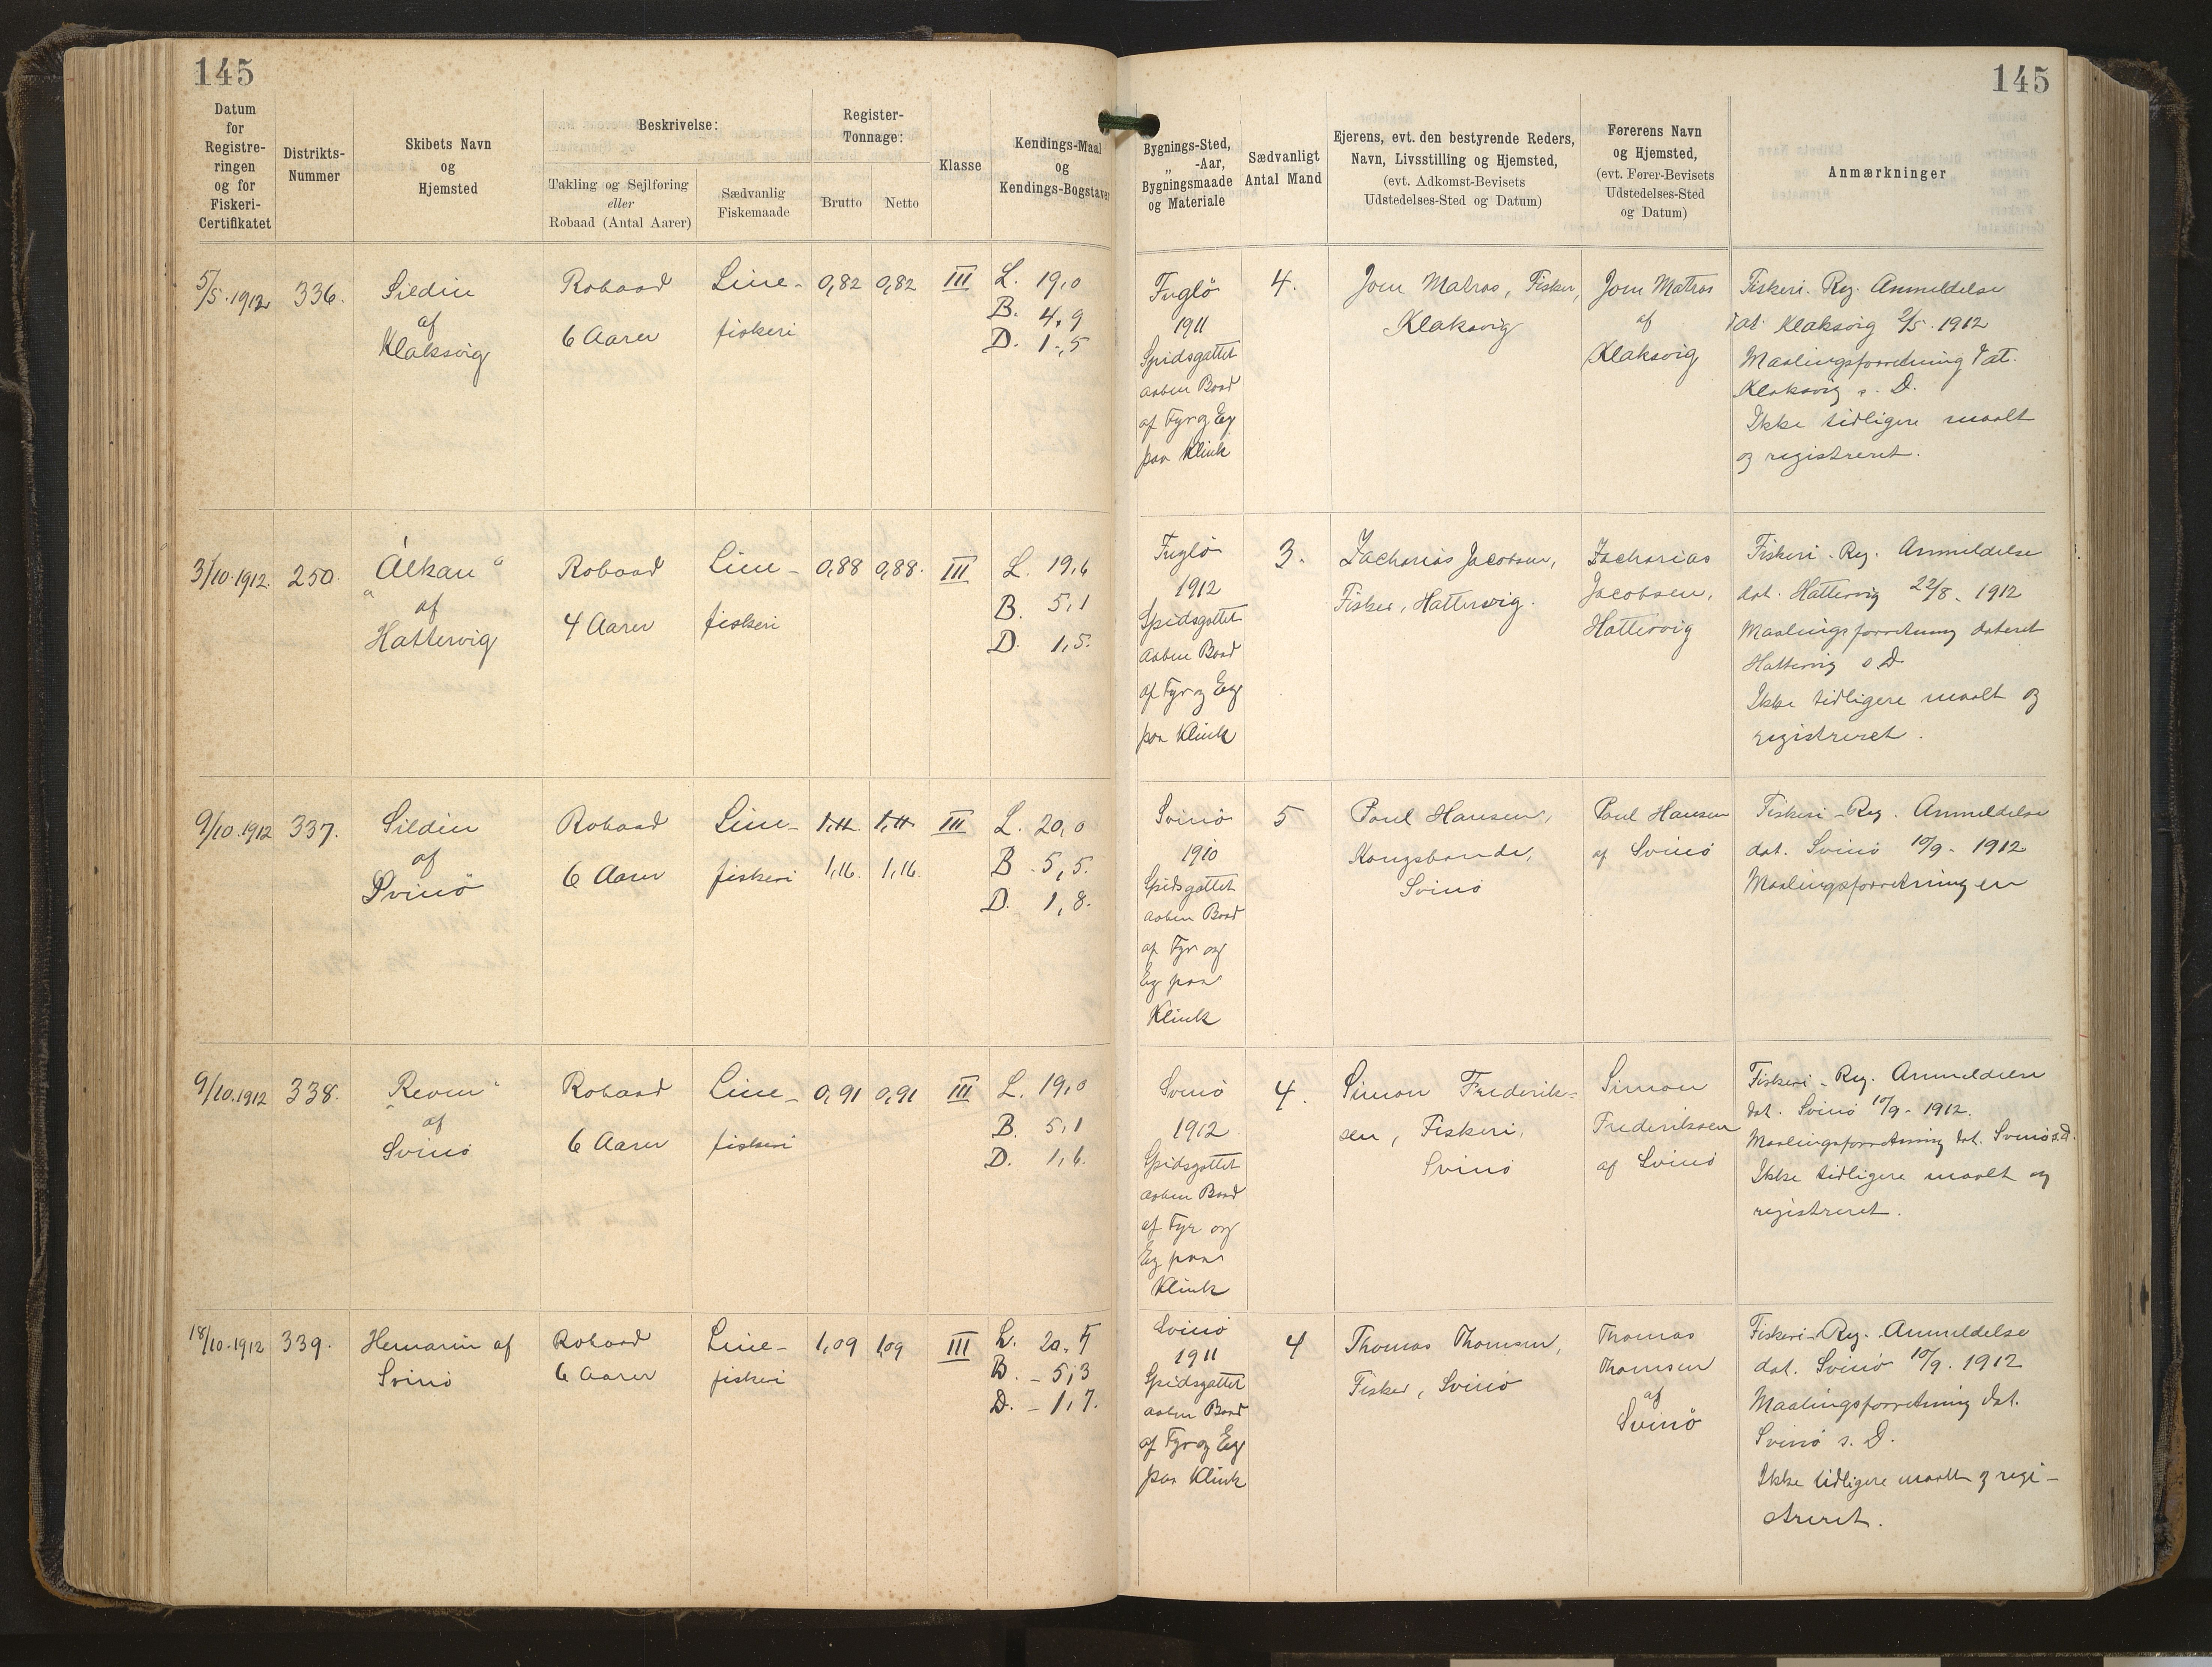 145
145
Datum
for
Registre-
ringen
og for
Fiskeri-
Certifikatet
Distrikts-
Nummer
Skibets Navn
og
Hjemsted
Beskrivelse:
Takling og Sejlføring
eller
Robaad (Antal Aarer)
Sædvanlig
Fiskemaade
Register-
Tonnage:
Brutto
Netto
Klasse
Kendings-Maal
og
Kendings-Bogstaver
Bygnings-Sted,
„ -Aar,
Bygningsmaade
og Materiale
Sædvanligt
Antal Mand
Ejerens, evt. den bestyrende Reders,
Navn, Livsstilling og Hjemsted,
(evt. Adkomst-Bevisets
Udstedelses-Sted og Datum)
Førerens Navn
og Hjemsted,
(evt. Fører-Bevisets
Udstedelses-Sted
og Datum)
Anmærkninger
5/5. 1912
336.
Sildin
af
Klaksvig
Robaad
6 Aarer
Line-
fiskeri
0,82
0,82
III
L. 19,0
B. 4,9
D. 1,5
Fuglö
1911
Spidsgattet
aaben Baad
af Fyr og Eg
paa Klink
4.
Joen Matras, Fisker,
Klaksvig
Joen Matras
af
Klaksvig
Fiskeri-Reg. Anmeldelse
dat. Klaksvig 2/5. 1912
Maalingsforretning dat.
Klaksvig s. D.
Ikke tidligere maalt
og registreret.
3/10. 1912.
250.
"Álkan"
af
Hattervig
Robaad
4 Aarer
Line-
fiskeri
0,88
0,88.
III
L. 19,6
B. 5,1
D. 1,5.
Fuglö
1912
Spidsgattet
aaben Baad
af Fyr og Eg
paa Klink
3.
Zacharias Jacobsen,
Fisker, Hattervig.
Zacharias
Jacobsen,
Hattervig
Fiskeri-Reg. Anmeldelse
dat. Hattervig 22/8. 1912
Maalingsforretning dateret
Hattervig s D
Ikke tidligere maalt og
registreret.
9/10. 1912
337.
Sildin
af
Svinö
Robaad
6 Aarer
Line-
fiskeri
1,11. 1,11.
1,16. 1,16.
III
L. 20,0
B. 5,5.
D. 1,8.
Svinö
1910
Spidsgattet
aaben Baad
af Fyr og
Eg paa
Klink
5
Poul Hansen,
Kongsbonde,
Svinö
Poul Hansen
af Svinö
Fiskeri-Reg. Anmeldelse
dat. Svinö 10/9. 1912
Maalingsforretningen
9/10. 1912
338.
"Revin"
af
Svinö
Robaad
6 Aarer
Line-
fiskeri
0,91
0,91
III
L. 19,0
B. 5,1
D. 1,6.
Svinö
1912
Spidsgattet
aaben Baad
af Fyr og
Eg paa
Klink
4.
Simon Frederik-
sen, Fiskeri,
Svinö
Simon
Frederiksen
af Svinö
Fiskeri-Reg. Anmeldelse
dat. Svinö 10/9. 1912.
Maalingsforretning dat. Svinö s.d.
Ikke tidligere maalt og
registreret.
18/10. 1912
339.
Hemarin af
Svinö
Robaad
6 Aarer
Line-
fiskeri
1,09
1,09
III
L. 20,5
B. - 5,3
D. - 1,7.
Svinö
1911
Spidsgattet
aaben Baad
af Fyr og Eg
paa Klink
4
Thomas Thomsen,
Fisker, Svinö
Thomas
Thomsen
af
Svinö
Fiskeri-Reg. Anmeldelse
dat. Svinö 10/9. 1912
Maalingsforretning dat.
Svinö s. D.
Ikke tidligere maalt og regi-
streret.